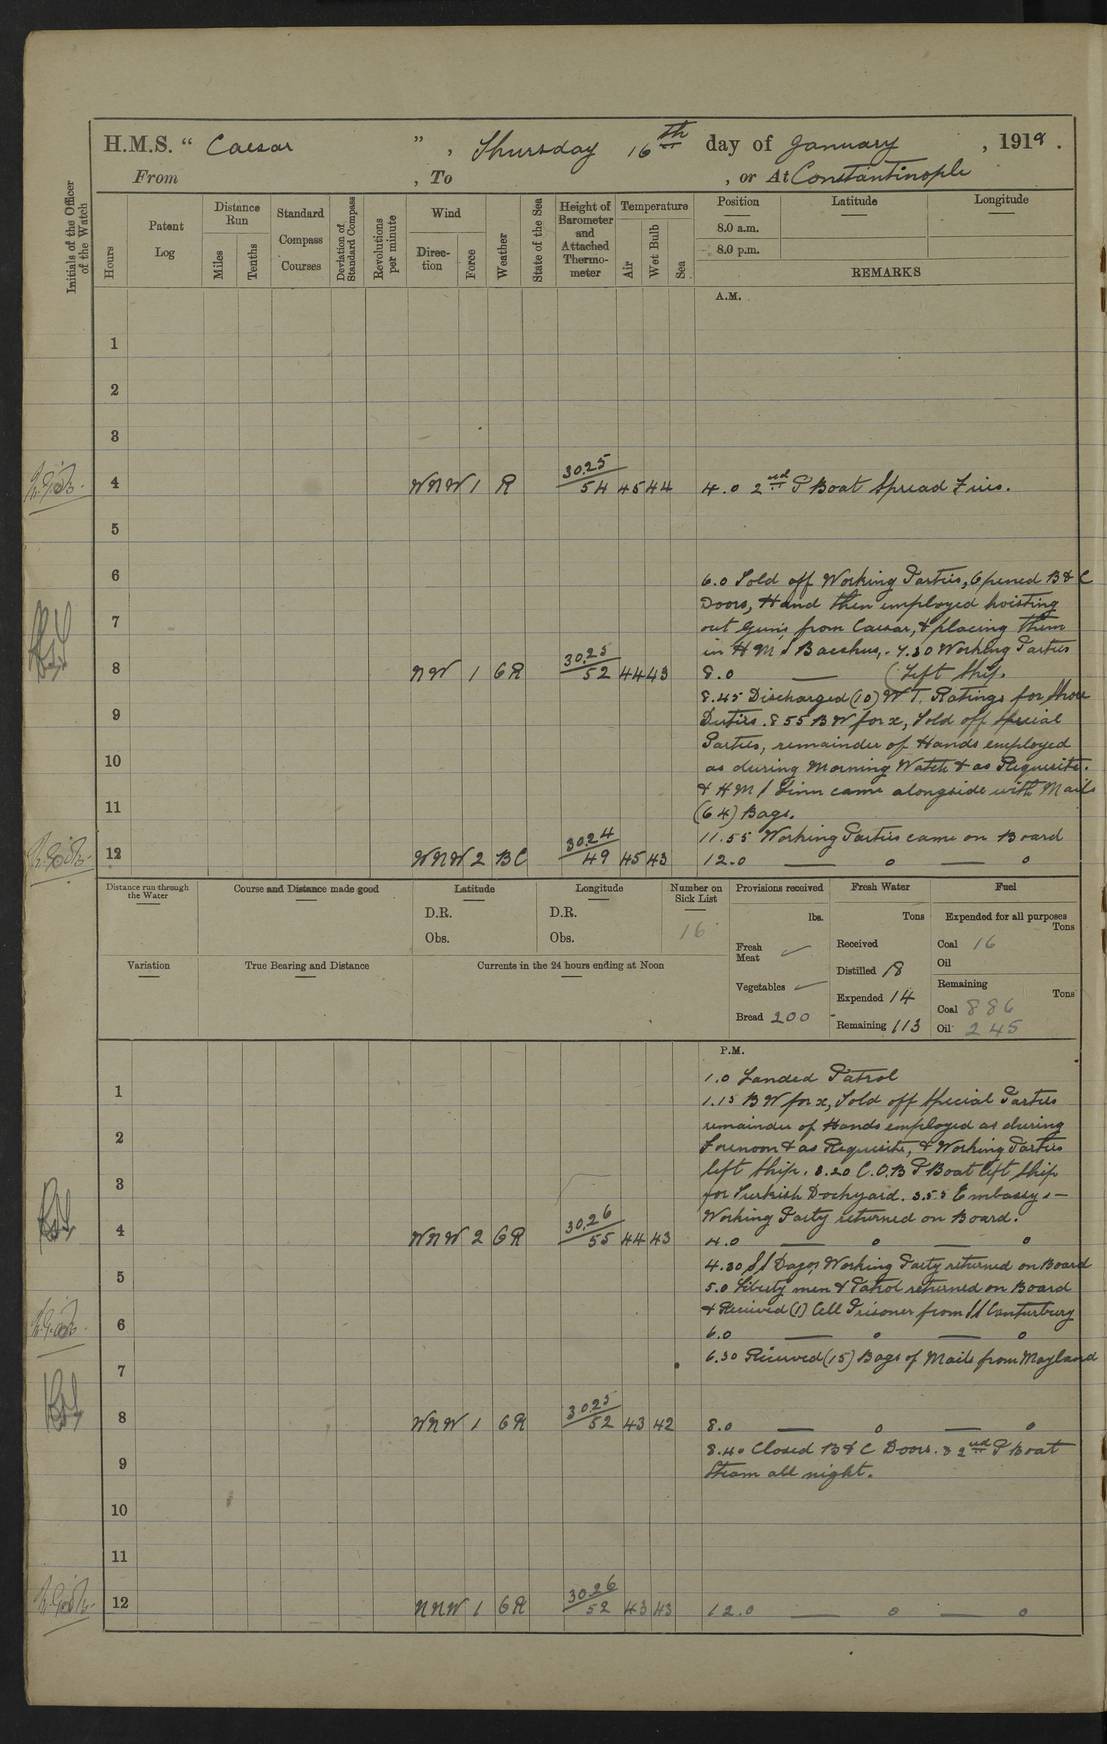 H.M.S. “ Caesar ” , Thursday 16th day of January , 1919 .
From , To , or At Constantinople
Initials of the Officer of the Watch
Hours
Patent Log
Distance Run
Miles
Tenths
Standard Compass Courses
Deviation of Standard Compass
Revolutions per minute
Wind
Direc-tion
Force
Weather
State of the Sea
Height of Barometer and Attached Thermo-meter
Temperature
Air
Wet Bulb
Sea
Position Latitude Longitude
8.0 a.m.
8.0 p.m.
REMARKS
A.M.
1
2
3
4 WNW 1 R 30.25 54 45 44 4.0 2nd P Boat Spread Fires.
5
6 6.0 Told off Working Parties, Opened B & C
Doors, Hand then employed hoisting
7 out Guns from Caesar, & placing them
in HMS Bacchus, - 7.30 Working Parties
8 NW 1 GR 30.25 52 44 43 8.0 — ( Left Ship.
8.45 Discharged (10) WT. Ratings for Shore
9 Duties. 8 55 BW for x, Told off Special
Parties, remainder of Hands employed
10 as during Morning Watch & as Requisite.
& HMS Linn came alongside with Mails
11 (64) Bags.
11.55 Working Parties came on Board
12 WNW 2 BC 30.24 49 45 43 12.0 — o — o
Distance run through the Water
Course and Distance made good
Latitude
D.R.
Obs.
Longitude
D.R.
Obs.
Number on Sick List
16
Provisions received
lbs.
Fresh Meat ✓
Vegetables ✓
Bread 200
Fresh Water
Tons
Received
Distilled 18
Expended 14
Remaining 113
Fuel
Expended for all purposes
Tons
Coal 16
Oil
Remaining
Tons
Coal 886
Oil 245
Variation
True Bearing and Distance
Currents in the 24 hours ending at Noon
P.M.
1.0 Landed Patrol
1 1.15 BW for x, Told off Special Parties
remainder of Hands employed as during
2 Forenoon & as Requisite, & Working Parties
left Ship. 3.20 C.O.B P Boat left Ship
3 for Turkish Dockyard. 3.55 Embassy -
Working Party returned on Board.
4 WNW 2 GR 30.26 55 44 43 4.0 — o — o
4.30 SS Working Party returned on Board
5 5.0 Liberty men & Patrol returned on Board
& Received (1) Cell Prisoner from SS Canterbury
6 6.0 — o — o
6.30 Received (15) Bags of Mails from Mayland
7
8 WNW 1 GR 30.25 52 43 42 8.0 — o — o
8.40 Closed B & C Doors. 2nd P Boat
9 Steam all night.
10
11
12 NNW 1 GR 30.26 52 43 43 12.0 — o — o